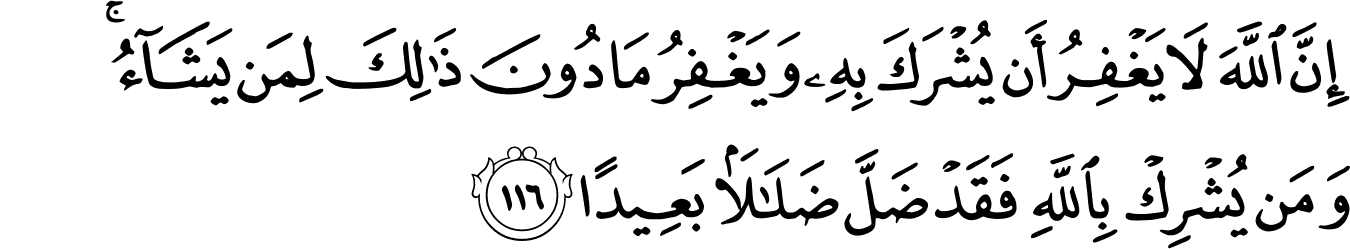 إِنَّ ٱللَّهَ لَا يَغْفِرُ أَن يُشْرَكَ بِهِۦ وَيَغْفِرُ مَا دُونَ ذَٰلِكَ لِمَن يَشَآءُ ۚ
وَمَن يُشْرِكْ بِٱللَّهِ فَقَدْ ضَلَّ ضَلَٰلًۢا بَعِيدًا ١١٦